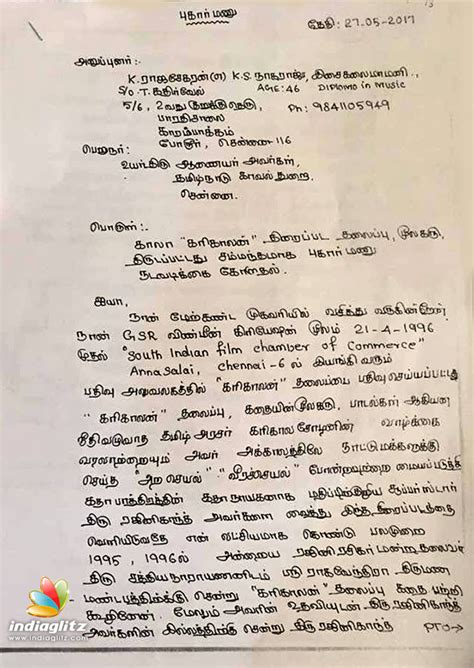 புகார் மனு
தேதி: 27-05-2017
அனுப்புனர்:-
K. ராஜசேகரன் (எ) K.S. நாகராஜா, கலைமாமணி.,
S/O .T. கதிர்வேல் AGE: 46 Diploma in Music
5/6, 2வது தெரு Ph: 9841105949
பாரதிசாலை
காரம்பாக்கம்
போரூர், சென்னை 116
பெறுநர்:-
உயர்திரு ஆணையர் அவர்கள்,
தமிழ்நாடு காவல் துறை.
சென்னை.
பொருள்:-
காலா "கரிகாலன்" திரைப்பட தலைப்பு, மூலகரு,
திருடப்பட்டது சம்மந்தமாக புகார் மனு
நடவடிக்கை கோருதல்.
ஐயா,
நான் மேற்கண்ட முகவரியில் வசித்து வருகின்றேன்
நான் GSR விண்மீன் கிரியேஷன் மூலம் 21-4-1996
முதல் "South Indian film chamber of Commerce"
Anna Salai, Chennai-6ல் இயங்கி வரும்
பதிவு அலுவலகத்தில் "கரிகாலன்" தலைப்பை பதிவு செய்யப்பட்டது
"கரிகாலன்" தலைப்பு, கதையின் மூலகரு, பாடல்கள் ஆகியன
நீதிவழுவாத தமிழ் அரசர் கரிகால சோழனின் வாழ்க்கை
வரலாற்றையும் அவர் அக்காலத்திலே நாட்டு மக்களுக்கு
செய்த "அற செயல்" "வீரச்செயல்" போன்றவற்றை மையப்படுத்தி
கதா பாத்திரத்தின் கதாநாயகனாக மதிப்பிற்குரிய சூப்பர் ஸ்டார்
திரு ரஜினிகாந்த் அவர்களை வைத்து இந்த திரைப்படத்தை
வெளியிடுவதே என் லட்சியமாக கொண்டு பலமுறை
1995, 1996ல் அன்றைய ரஜினி ரசிகர் மன்ற தலைவர்
திரு சத்திய நாராயணனிடம் ராகவேந்திரா திருமண
மண்டபத்திற்கு சென்று "கரிகாலன்" தலைப்பு கதை பற்றி
கூறினேன். மேலும் அவரின் உதவியுடன் திரு ரஜினிகாந்த்
அவர்களின் இல்லத்திற்கு சென்று திரு ரஜினிகாந்த் PTO→
indiaglitz
www.indiaglitz.com